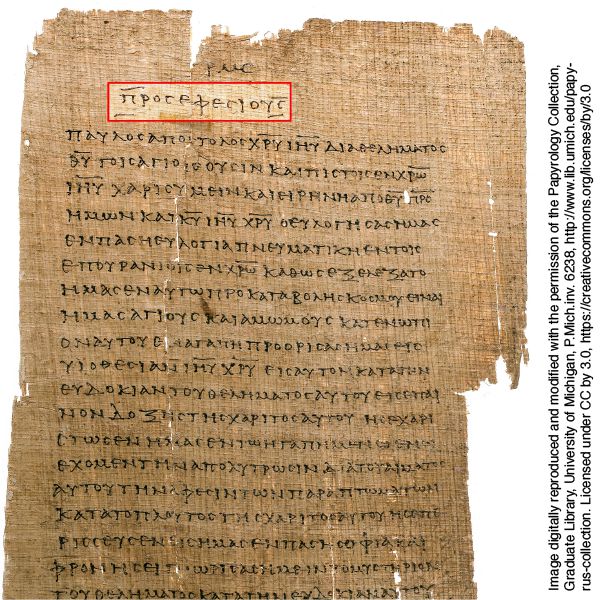 ΡΜϚ
ΠΡΟϹΕΦΕϹΙΟΥϹ
ΠΑΥΛΟϹΑΠΟϹΤΟΛΟϹΧΡΥΙΗΥΔΙΑΘΕΛΗΜΑΤΟϹ
ΘΥΤΟΙϹΑΓΙΟΙϹΟΥϹΙΝΚΑΙΠΙϹΤΟΙϹΕΝΧΡΩ
ΙΗΥΧΑΡΙϹΥΜΕΙΝΚΑΙΕΙΡΗΝΗΑΠΟΘΥΠΡϹ
ΗΜΩΝΚΑΙΚΥΙΗΥΧΡΥΟΕΥΛΟΓΗϹΑϹΗΜΑϹ
ΕΝΠΑϹΗΕΥΛΟΓΙΑΠΝΕΥΜΑΤΙΚΗΕΝΤΟΙϹ
ΕΠΟΥΡΑΝΙΟΙϹΕΝΧΡΩΚΑΘΩϹΕΞΕΛΕΞΑΤΟ
ΗΜΑϹΕΝΑΥΤΩΠΡΟΚΑΤΑΒΟΛΗϹΚΟϹΜΟΥΕΙΝΑΙ
ΗΜΑϹΑΓΙΟΥϹΚΑΙΑΜΩΜΟΥϹΚΑΤΕΝΩΠΙ
ΟΝΑΥΤΟΥΕΝΑΓΑΠΗΠΡΟΟΡΙϹΑϹΗΜΑϹΕΙϹ
ΥΙΟΘΕϹΙΑΝΙΗΥΧΡΥΕΙϹΑΥΤΟΝΚΑΤΑΤΗΝ
ΕΥΔΟΚΙΑΝΤΟΥΘΕΛΗΜΑΤΟϹΑΥΤΟΥΕΙϹΕΠΑΙ
ΝΟΝΔΟΞΗϹΤΗϹΧΑΡΙΤΟϹΑΥΤΟΥΗϹΕΧΑΡΙ
ΤΩϹΕΝΗΜΑϹΕΝΤΩΗΓΑΠΗΜΕΝΩΕΝΩ
ΕΧΟΜΕΝΤΗΝΑΠΟΛΥΤΡΩϹΙΝΔΙΑΤΟΥΑΙΜΑΤΟϹ
ΑΥΤΟΥΤΗΝΑΦΕϹΙΝΤΩΝΠΑΡΑΠΤΩΜΑΤΩΝ
ΚΑΤΑΤΟΠΛΟΥΤΟϹΤΗϹΧΑΡΙΤΟϹΑΥΤΟΥΗϹΕΠΕ
ΡΙϹϹΕΥϹΕΝΕΙϹΗΜΑϹΕΝΠΑϹΗϹΟΦΙΑΚΑΙ
ΦΡΟΝΗϹΕΙΓΝΩΡΙϹΑϹΗΜΕΙΝΤΟΜΥϹΤΗΡΙΟΝ
ΤΟΥΘΕΛΗΜΑΤΟϹΑΥΤΟΥΚΑΤΑΤΗΝΕΥΔΟΚΙΑΝΑΥΤΟΥ
Image digitally reproduced and modified with the permission of the Papyrology Collection,
Graduate Library, University of Michigan, P.Mich.inv. 6238, http://www.lib.umich.edu/papy-
rus-collection. Licensed under CC by 3.0, https://creativecommons.org/licenses/by/3.0